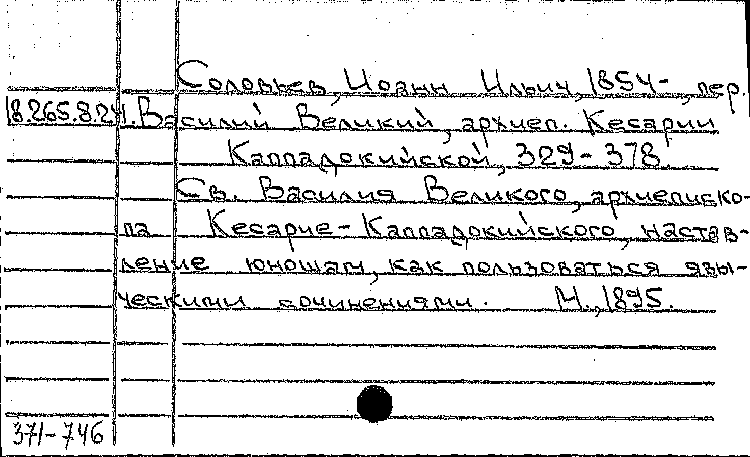 Соловьев, Иоанн Ильич, 1854-, пер.
18.265.8.241. Василий Великий, архиеп. Кесарии
Каппадокийской, 329-378.
Св. Василия Великого, архиеписко-
па Кесарие-Каппадокийского, настав-
ление юношам, как пользоваться язы-
ческими сочинениями. М., 1895.
371-746